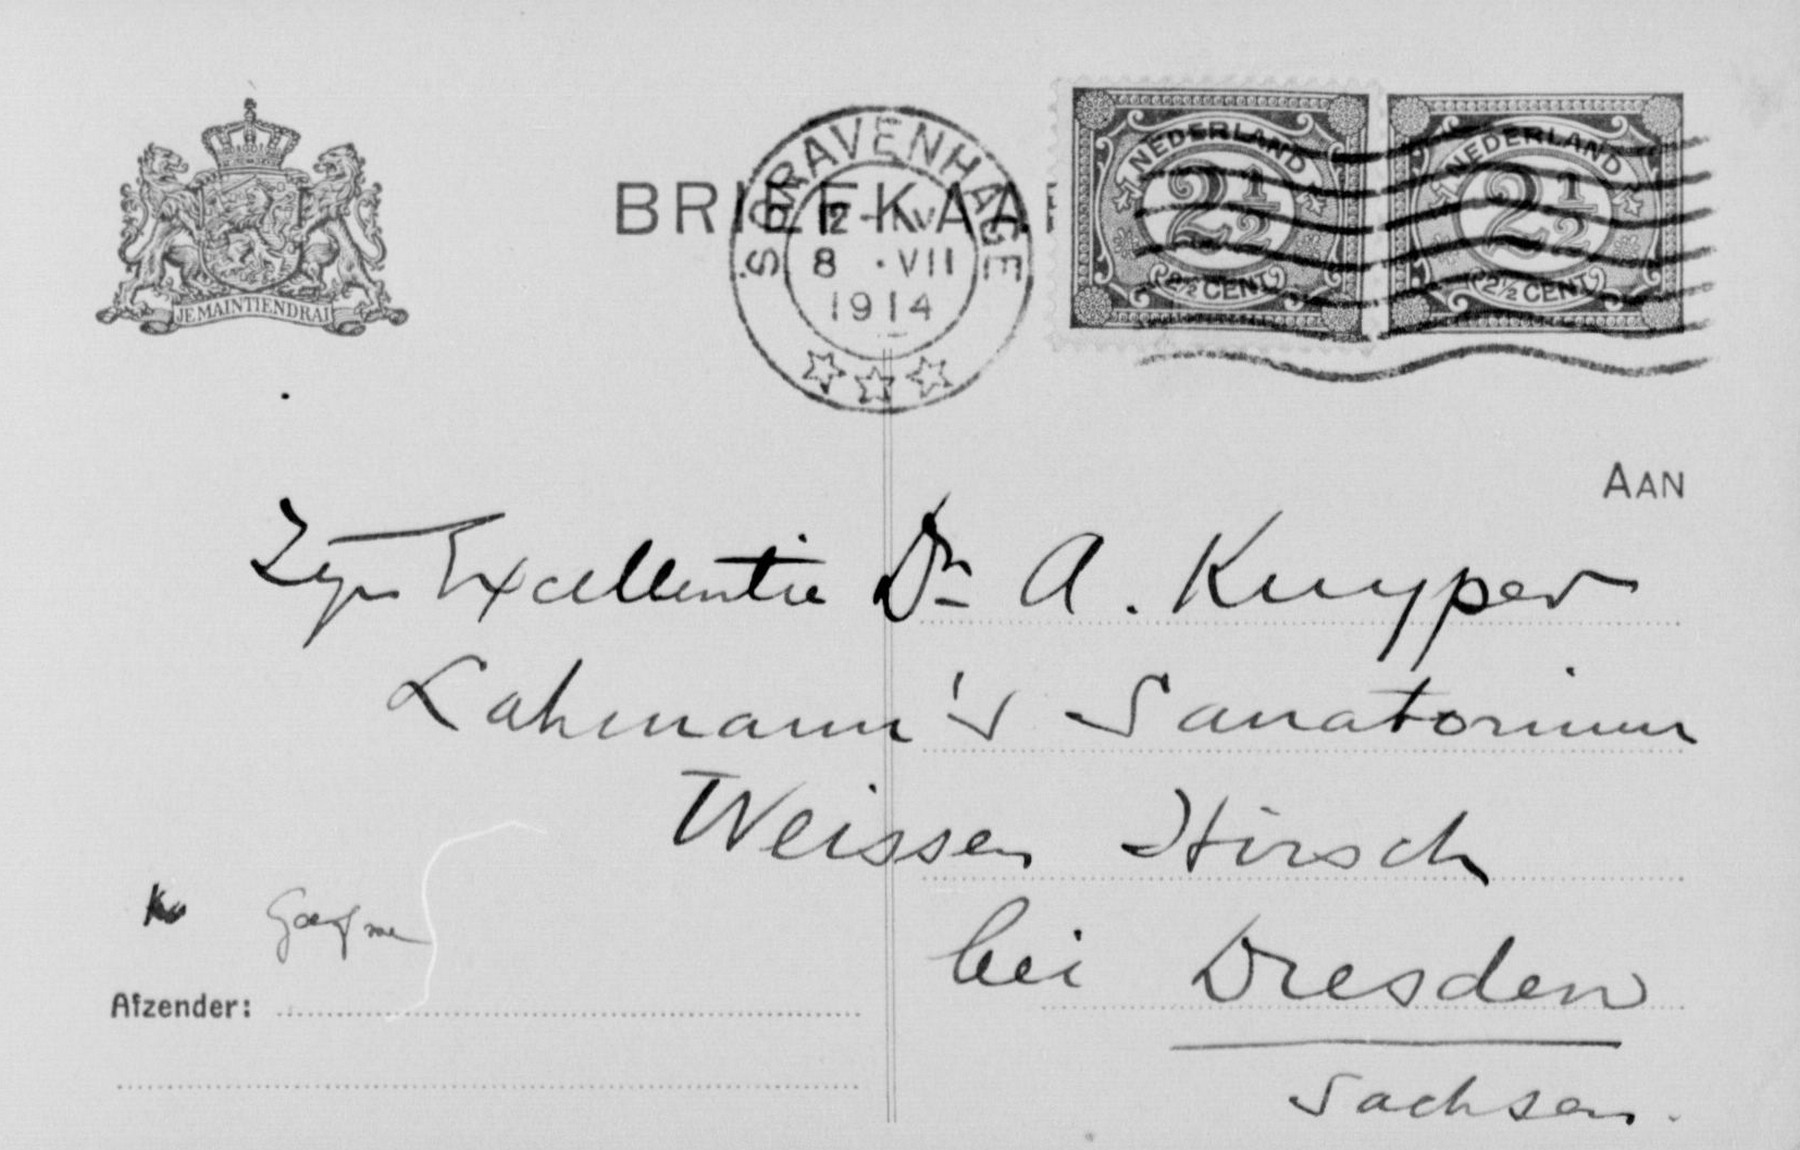 JE MAINTIENDRAI
BRIEFKAAR
'S GRAVENHAGE
8 · VII
1914
NEDERLAND
2½
2½ CENT
NEDERLAND
2½
2½ CENT
AAN
Zijn Excellentie Dr A. Kuyper
Lahmann's Sanatorium
Weisser Hirsch
bei Dresden
Sachsen.
Afzender: